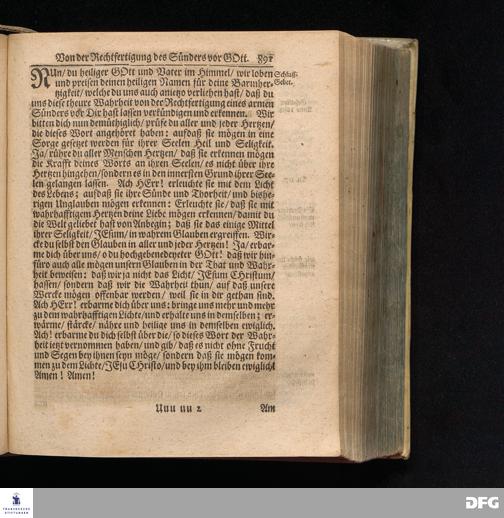 Von der Rechtfertigung des Sünders vor GOtt. 891
NUn/ du heiliger GOtt und Vater im Himmel/ wir loben
und preisen deinen heiligen Namen für deine Barmher-
tzigkeit/ welche du uns auch anietzo verliehen hast/ daß du
uns diese theure Wahrheit von der Rechtfertigung eines armen
Sünders vor Dir hast lassen verkündigen und erkennen. Wir
bitten dich nun demüthiglich/ prüfe du aller und jeder Hertzen/
die dieses Wort angehöret haben: aufdaß sie mögen in eine
Sorge gesetzet werden für ihrer Seelen Heil und Seligkeit.
Ja/ rühre du aller Menschen Hertzen/ daß sie erkennen mögen
die Krafft deines Worts an ihren Seelen/ es nicht über ihre
Hertzen hingehen/ sondern es in den innersten Grund ihrer See-
len gelangen lassen. Ach HErr! erleuchte sie mit dem Licht
des Lebens: aufdaß sie ihre Sünde und Thorheit/ und bishe-
rigen Unglauben mögen erkennen: Erleuchte sie/ daß sie mit
wahrhafftigem Hertzen deine Liebe mögen erkennen/ damit du
die Welt geliebet hast von Anbegin; daß sie das einige Mittel
ihrer Seligkeit/ JEsum/ in wahrem Glauben ergreiffen. Wir-
cke du selbst den Glauben in aller und jeder Hertzen! Ja/ erbar-
me dich über uns/ o du hochgebenedeyeter GOtt! daß wir hin-
füro auch alle mögen unsern Glauben in der That und Wahr-
heit beweisen: daß wir ja nicht das Licht/ JEsum CHristum/
hassen/ sondern daß wir die Wahrheit thun/ auf daß unsere
Wercke mögen offenbar werden/ weil sie in dir gethan sind.
Ach HErr! erbarme dich über uns: bringe uns mehr und mehr
zu dem wahrhafftigen Lichte/ und erhalte uns in demselben; er-
wärme/ stärcke/ nähre und heilige uns in demselben ewiglich.
Ach! erbarme du dich selbst über die/ so dieses Wort der Wahr-
heit ietzt vernommen haben/ und gib/ daß es nicht ohne Frucht
und Segen bey ihnen seyn möge/ sondern daß sie mögen kom-
men zu dem Lichte/ JEsu Christo/ und bey ihm bleiben ewiglich!
Amen! Amen!
Schluß-
Gebet.
Uuu uu 2 Am
FRANCKESCHE
STIFTUNGEN
DFG